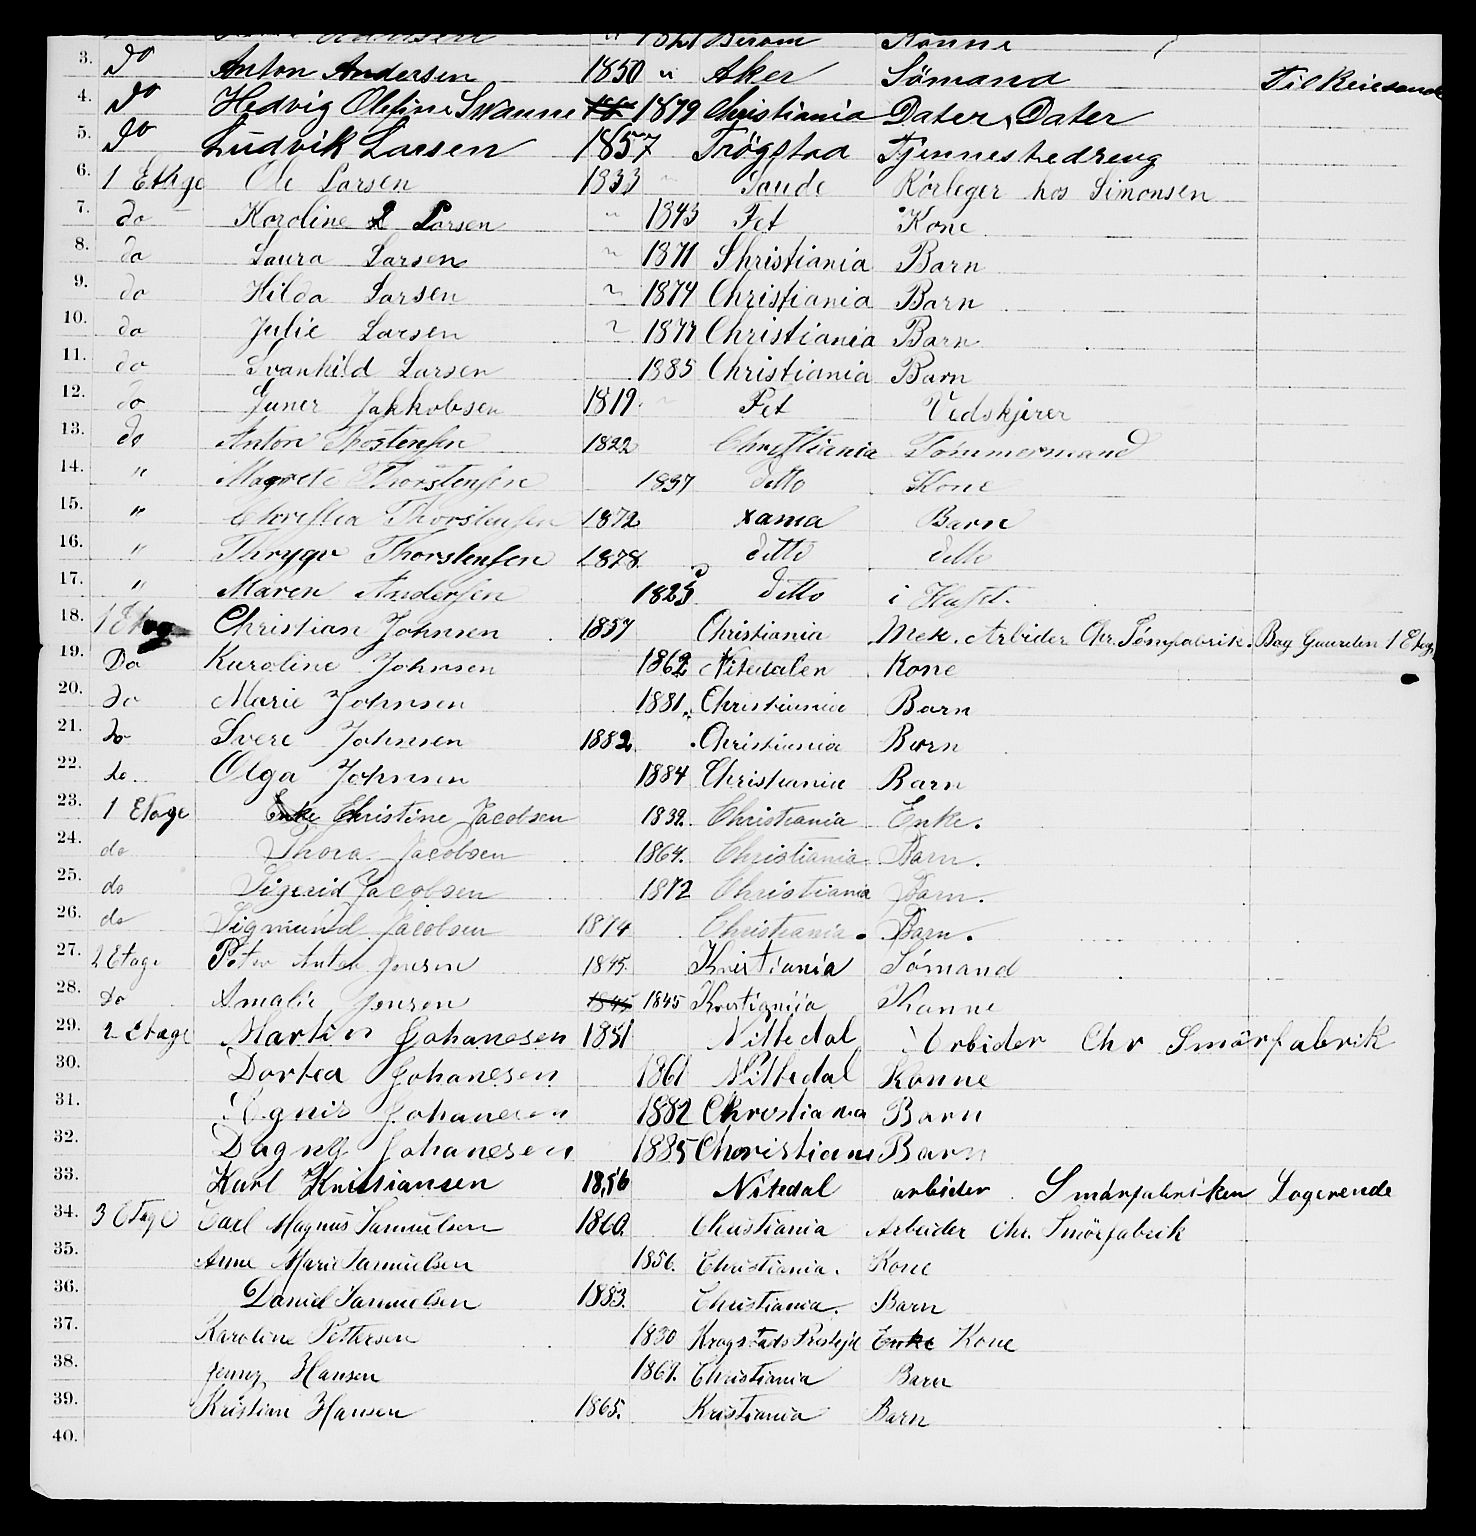 1821 Konne
3. do Anton Andersen 1850 " Aker Sömand Til Reisende
4. do Hedvig Oline Swanne 1879 Christiania Dater, Dater
5. do Ludvik Larsen 1857 Trögstad Tjennestedreng
6. 1 Etage Ole Larsen 1833 " Saude Rörleger hos Simonsen
7. do Karoline L Larsen " 1843 Fet Kone
8. do Laura Larsen " 1871 Christiania Barn
9. do Hilda Larsen " 1874 Christiania Barn
10. do Julie Larsen " 1877 Christiania Barn
11. do Svanhild Larsen 1885 Christiania Barn
12. do Juner Jakkobsen 1819 " Fet Vedskjerer
13. do Anton Thostensen 1822 Christiania Tömmermand
14. " Magrete Thorstensen 1837 ditto Kone
15. " Thorstensen 1872 sama Barn
16. " Thrygv Thorstensen 1878 ditto ditto
17. " Maren Andersen 1825 ditto i Huset.
18. 1 Etag Christian Johnsen 1857 Christiania Mek. Arbider Chr. Sömfabrik. Bag Gaarden 1 Etag.
19. Do Karoline Johnsen 1862 Nitedalen Kone
20. do Marie Johnsen 1881 Christiania Barn
21. do Svere Johnsen 1882 Christiania Barn
22. do. Olga Johnsen 1884 Christiania Barn
23. 1 Etage Enke Christine Jacobsen 1839. Christiania Enke.
24. do Thora Jacobsen 1864. Christiania Barn.
25. do Sigrid Jacobsen 1872 Christiania Barn.
26. do Sigmund Jacobsen 1874 Christiania. Barn.
27. 2 Etage Peter Anton Jensen 1845. Kristiania Sömand
28. do Amalie Jensen 1845 1845 Kristianiia Kanne
29. 2 Etage Martin Johanesen 1851 Nittedal Arbider Chr Smörfabrik
30. Dortea Johanesen 1861 Nittedal Konne
31. Agnis Johanesen 1882 Chrestiania Barn
32. Dagny Johanesen 1885 Choristiania Barn
33. Karl Kristiansen 1856 Nitedal arbider Smörfabriken Logerende
34. 3 Etage Carl Magnus Samuelsen 1860. Christiania Arbeider Chr. Smörfabrik
35. Anne Marie Samuelsen 1856. Christiania. Kone
36. Daniel Samuelsen 1883. Christiania. Barn
37. Karoline Pettersen 1830 Krogstads Prestejd Enke Kone
38. Jenny Hansen 1869. Christiania Barn
39. Kristian Hansen 1865. Kristiania Barn
40.